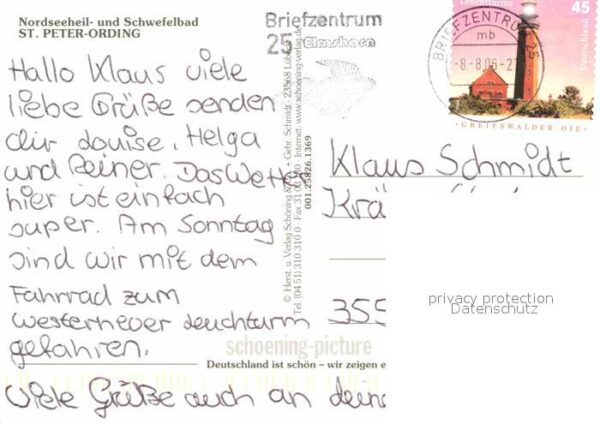 Nordseeheil- und Schwefelbad
ST. PETER-ORDING
Hallo Klaus viele
liebe Grüße senden
dir Louise, Helga
und Reiner. Das Wetter
hier ist einfach
super. Am Sonntag
sind wir mit dem
Fahrrad zum
Westerhever Leuchturm
gefahren.
Viele Grüße auch an deine
© Herst. u. Verlag Schöning & + Gebr. Schmidt, 23568 Lüb
Tel. (04 51) 310 310 0 Fax 31 Internet: www.schoening-verlag.de
001.25826.1369
schoening-picture
Deutschland ist schön – wir zeigen e
Briefzentrum
25 Elmshorn
BRIEFZENTRUM 25
mb
-8-8.06-2
Leuchttürme
45
Deutschland
GREIFSWALDER OIE
Klaus Schmidt
Krä
355
privacy protection
Datenschutz